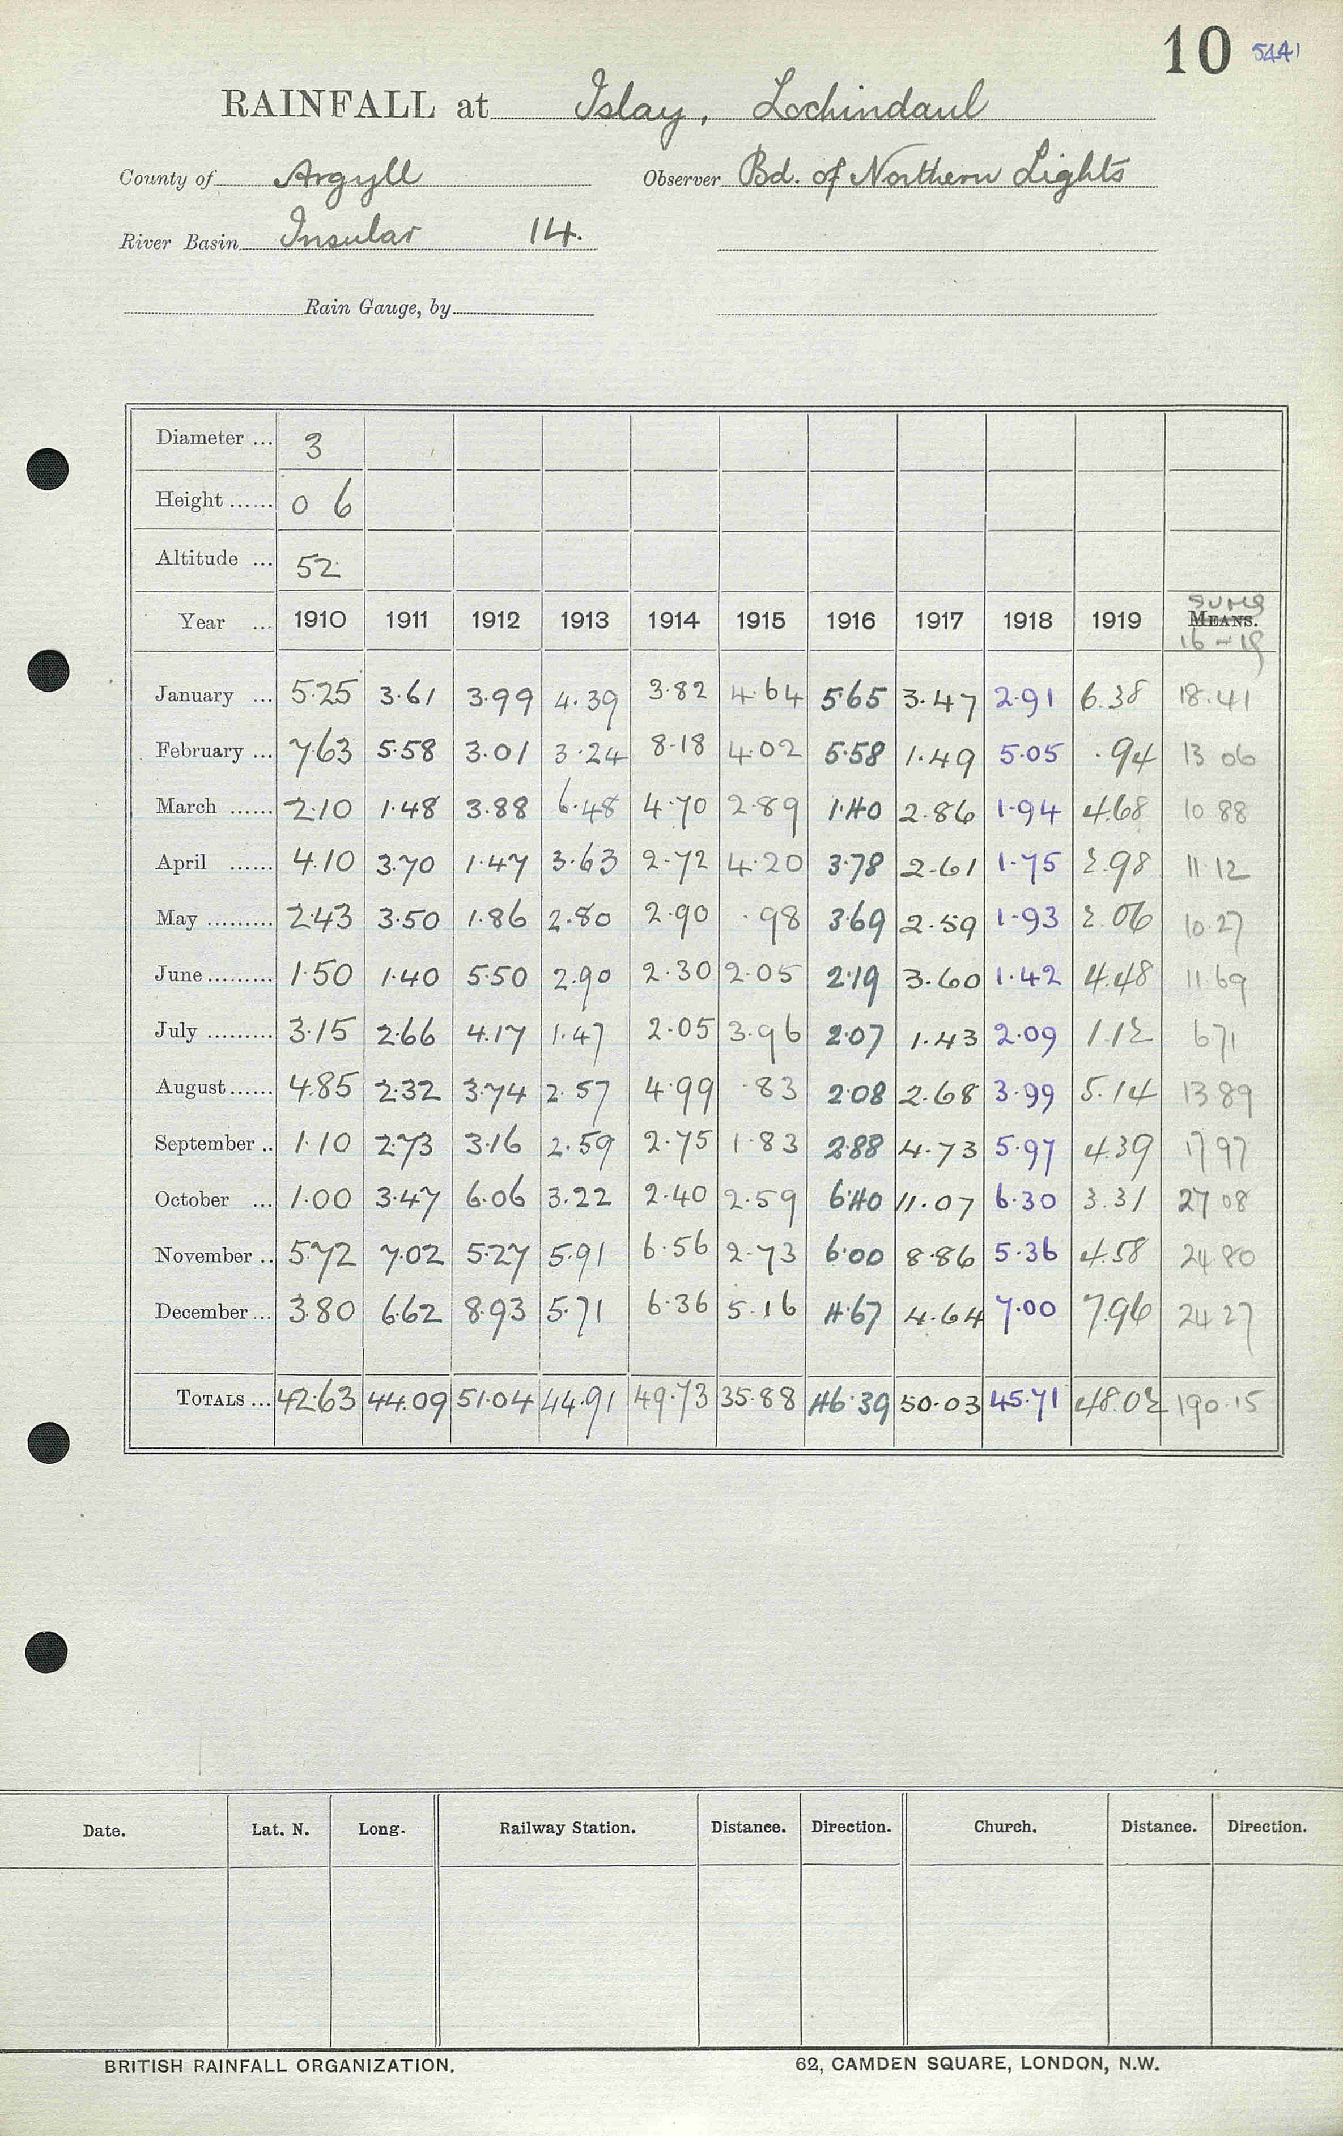 10 5441
RAINFALL at Islay, Lochindaul
County of Argyll Observer Bd. of Northern Lights
River Basin Insular 14.
Rain Gauge, by
Diameter ... 3
Height ...... 0 6
Altitude ... 52
SUMS
Year ... 1910 1911 1912 1913 1914 1915 1916 1917 1918 1919 MEANS.
16-19
January ... 5.25 3.61 3.99 4.39 3.82 4.64 5.65 3.47 2.91 6.38 18.41
February ... 7.63 5.58 3.01 3.24 8.18 4.02 5.58 1.49 5.05 .94 13 06
March ...... 2.10 1.48 3.88 6.48 4.70 2.89 1.40 2.86 1.94 4.68 10 88
April ...... 4.10 3.70 1.47 3.63 2.72 4.20 3.78 2.61 1.75 2.98 11.12
May ......... 2.43 3.50 1.86 2.80 2.90 .98 3.69 2.59 1.93 2.06 10.27
June ......... 1.50 1.40 5.50 2.90 2.30 2.05 2.19 3.60 1.42 4.48 11.69
July ......... 3.15 2.66 4.17 1.47 2.05 3.96 2.07 1.43 2.09 1.12 6 71
August ...... 4.85 2.32 3.74 2.57 4.99 .83 2.08 2.68 3.99 5.14 13 89
September .. 1.10 2.73 3.16 2.59 2.75 1.83 2.88 4.73 5.97 4.39 17 97
October ... 1.00 3.47 6.06 3.22 2.40 2.59 6.40 11.07 6.30 3.31 27 08
November .. 5.72 7.02 5.27 5.91 6.56 2.73 6.00 8.86 5.36 4.58 24 80
December ... 3.80 6.62 8.93 5.71 6.36 5.16 4.67 4.64 7.00 7.96 24 27
TOTALS ... 42.63 44.09 51.04 44.91 49.73 35.88 46.39 50.03 45.71 48.02 190.15
Date. Lat. N. Long. Railway Station. Distance. Direction. Church. Distance. Direction.
BRITISH RAINFALL ORGANIZATION. 62, CAMDEN SQUARE, LONDON, N.W.